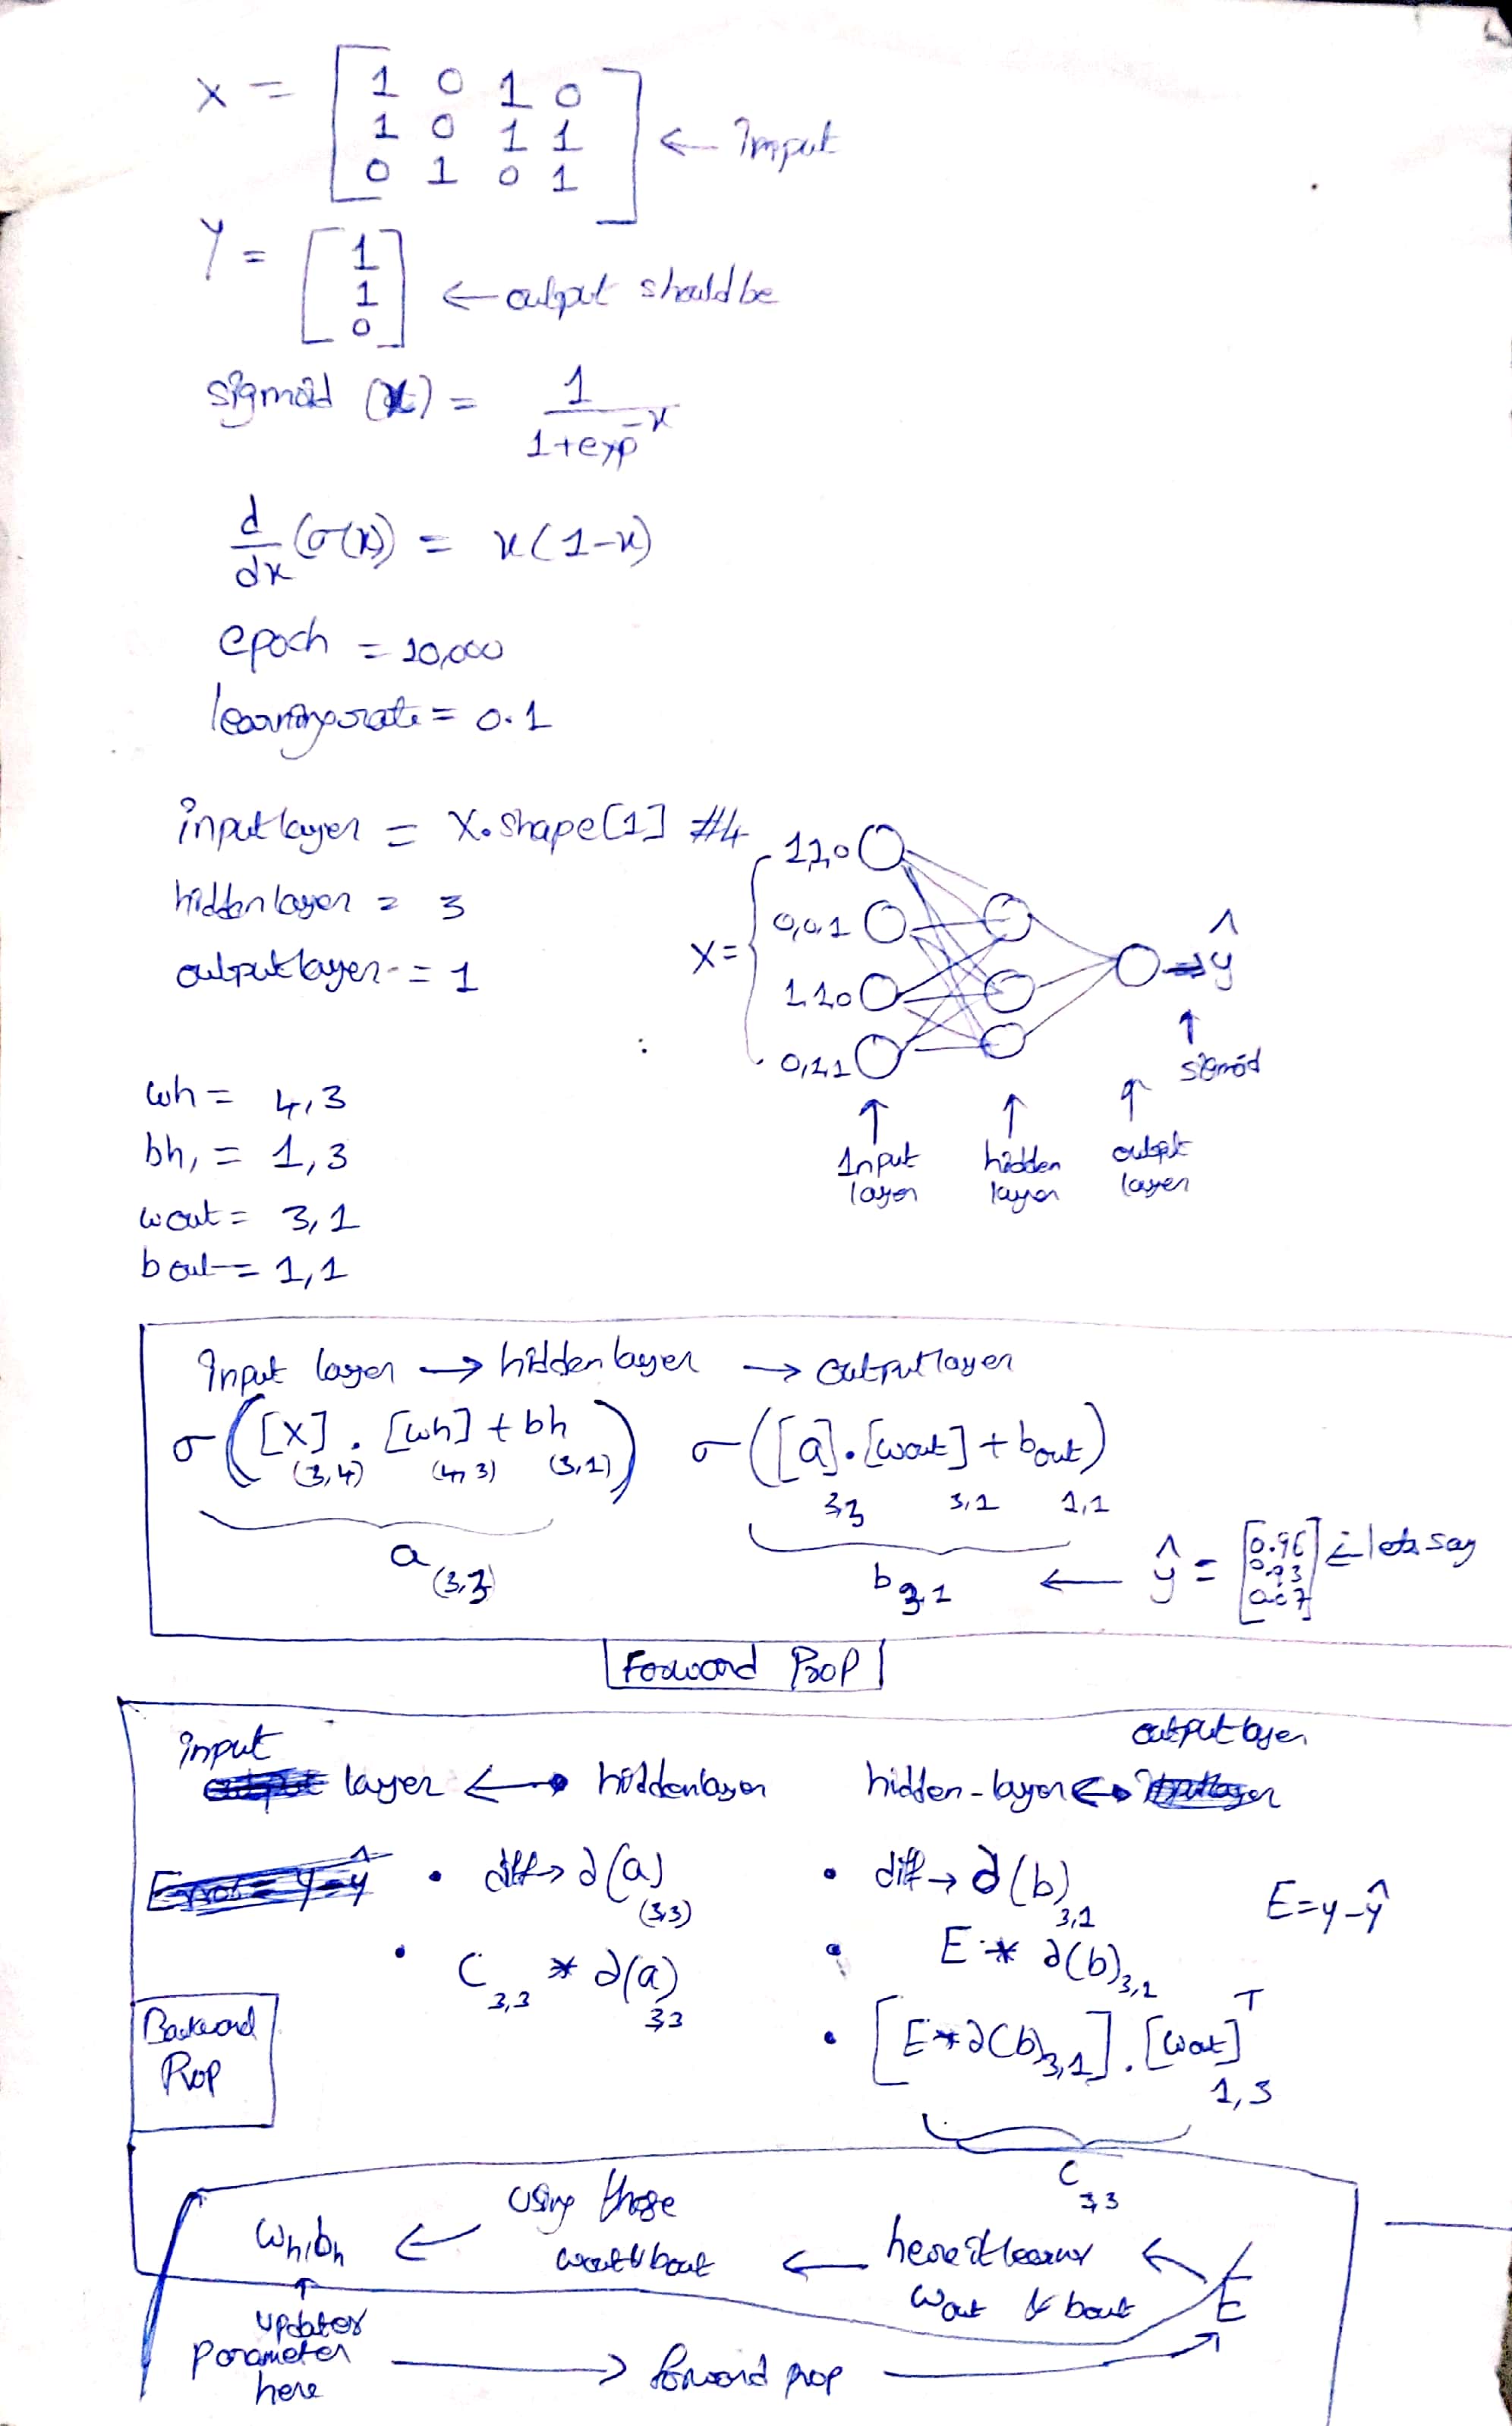 X = [ 1 0 1 0
1 0 1 1 ← Input
0 1 0 1 ]
Y = [ 1
1 ← output should be
0 ]
sigmoid (x) = 1
1+exp^-x
d/dx (σ(x)) = x(1-x)
epoch = 10,000
learning rate = 0.1
input layer = X.shape[1] #4
hidden layer = 3
output layer = 1
X =
1,1,0
0,0,1
1,1,0
0,1,1
ŷ
↑ sigmoid
↑ Input layer
↑ hidden layer
↑ output layer
wh = 4,3
bh, = 1,3
wout = 3,1
bout = 1,1
Input layer → hidden layer → output layer
σ([X] . [wh] + bh) σ([a].[wout] + bout)
(3,4) (4,3) (3,1) 3,3 3,1 1,1
a (3,3) b 3,1 ← ŷ = [0.96 ← lets say
Forward Prop
output layer
input layer ← hidden layer hidden-layer ←
• diff → ∂(a) (3,3) • diff → ∂(b) 3,1 E = y-ŷ
• C 3,3 * ∂(a) 3,3 • E * ∂(b) 3,1
Backward Prop
• [E*∂(b) 3,1] . [wout]^T 1,3
C 3,3
wh,bh ← using those wout & bout ← here it learns wout & bout ← E
↑
updates parameter here → forward prop →